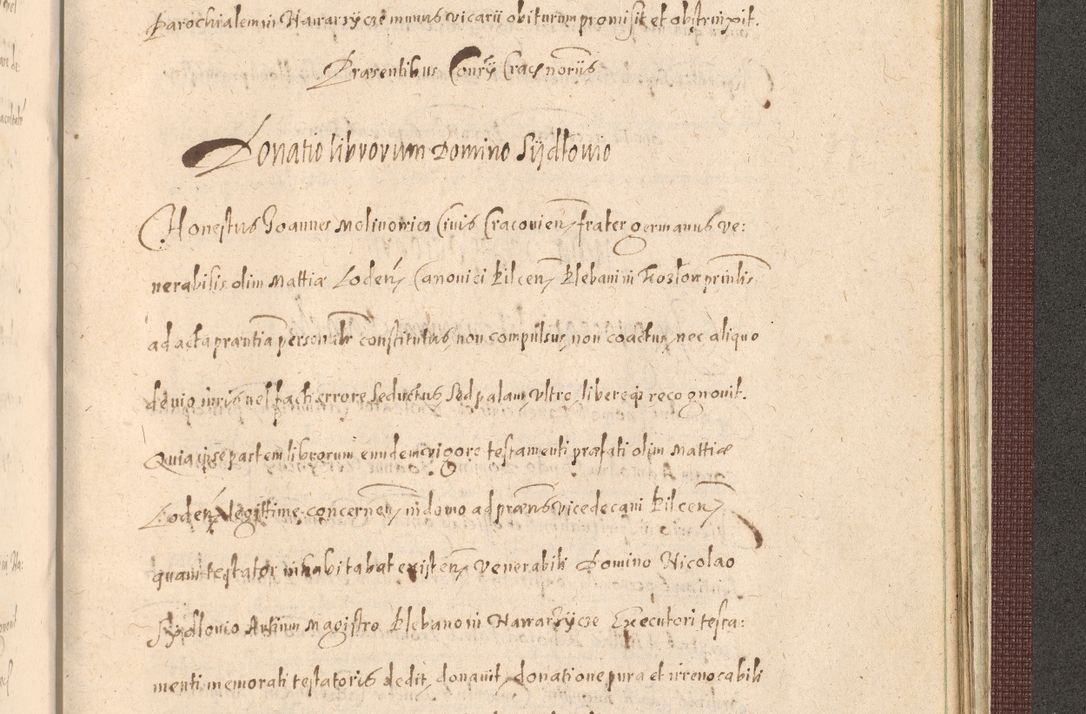 Parochialem in Hawarzycze munus vicarii obiturum promisit et obstrinxit.
Praesentibus Cracz
Donatio librorum Domino Sydlowio
Honestus Joannes Molinowicz Civis Cracovien, frater germanus ve:
nerabilis olim Mattiae Loden, Canonici Kilcen, Plebani in Kozlow
ad acta praentia personalr constitutus, non compulsus, non coactus, nec aliquo
devio iuris vel facti errore seductus, sed palam, ultro, libereq recognovit.
Quia ipse partem librorum eundem vigore testamenti praefati olim Mattiae
Loden, legittime concernen, in domo ad praens vicedecani Kilcen,
quam testator inhabitabat existen, venerabili Domino Nicolao
Sydlovio Artium Magistro Plebano in Hawarzycze Executori testa:
menti memorati testatoris dedit, donavit, donatione pura et irrevocabili